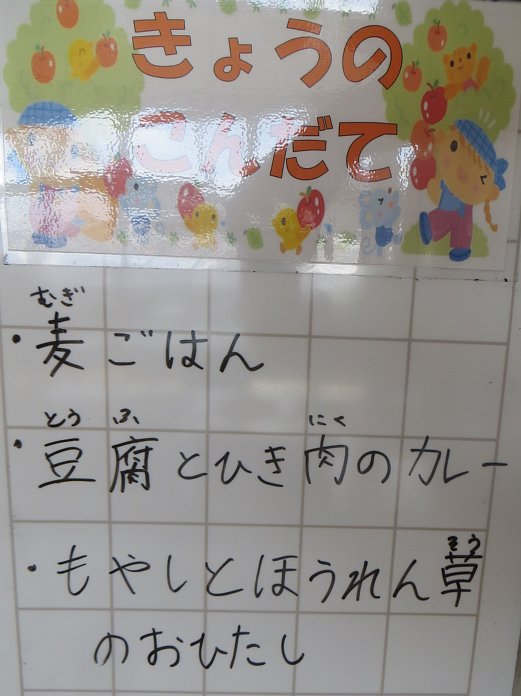 きょうの
こんだて
むぎ
・麦ごはん
とう ふ にく
・豆腐とひき肉のカレー
そう
・もやしとほうれん草
のおひたし